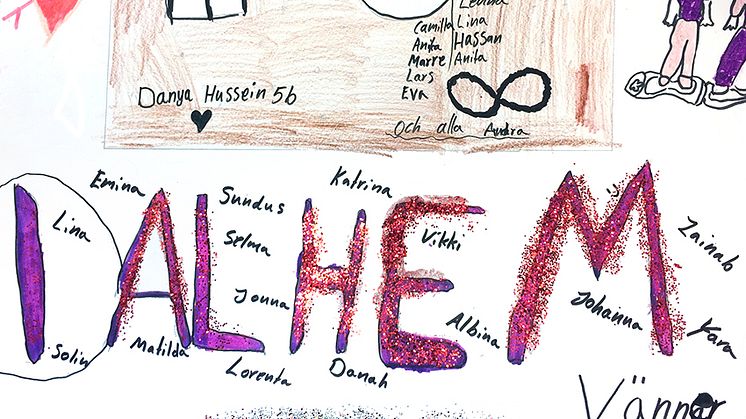 Camilla Lina
Anita Hassan
Marre Anita
Lars
Eva
Danya Hussein 5b
Och alla Andra
Emina
Katrina
Sundus
Lina
Selma
Vikki
Zainab
DALHEM
Jonna
Johanna
Albina
Yara
Solin
Matilda
Lorenta
Danah
Vänner